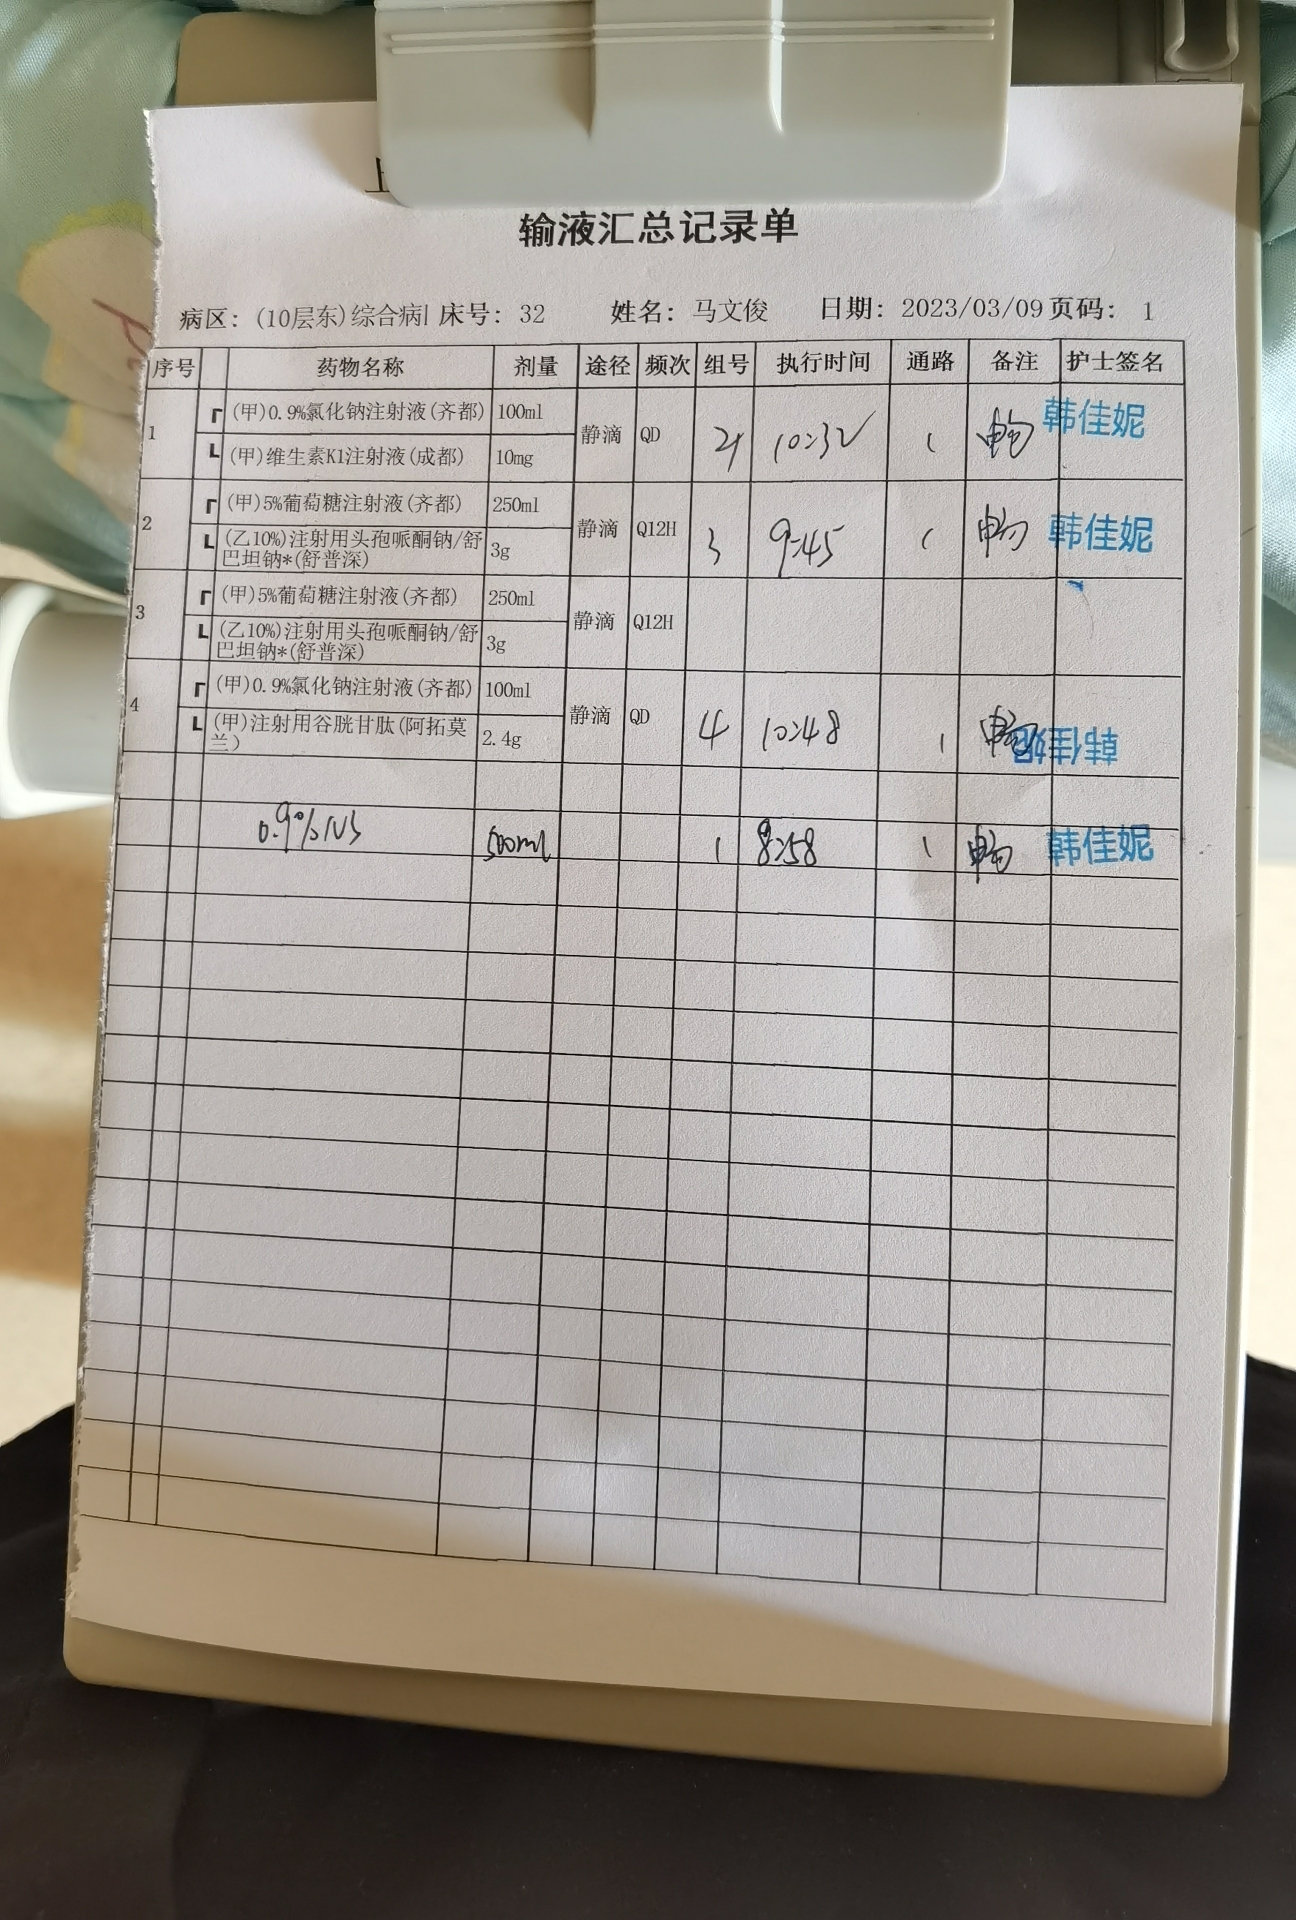 输液汇总记录单
病区：(10层东)综合病 床号：32 姓名：马文俊 日期：2023/03/09 页码：1
序号 药物名称 剂量 途径 频次 组号 执行时间 通路 备注 护士签名
1 ┏ (甲)0.9%氯化钠注射液(齐都) 100ml 静滴 QD 10:32 1 畅 韩佳妮
┗ (甲)维生素K1注射液(成都) 10mg
2 ┏ (甲)5%葡萄糖注射液(齐都) 250ml 静滴 Q12H 3 9:45 1 畅 韩佳妮
┗ (乙10%)注射用头孢哌酮钠/舒
巴坦钠*(舒普深) 3g
3 ┏ (甲)5%葡萄糖注射液(齐都) 250ml 静滴 Q12H
┗ (乙10%)注射用头孢哌酮钠/舒
巴坦钠*(舒普深) 3g
4 ┏ (甲)0.9%氯化钠注射液(齐都) 100ml 静滴 QD 4 10:48 1 畅 韩佳妮
┗ (甲)注射用谷胱甘肽(阿拓莫
兰) 2.4g
0.9%NS 500ml 1 8:58 1 畅 韩佳妮